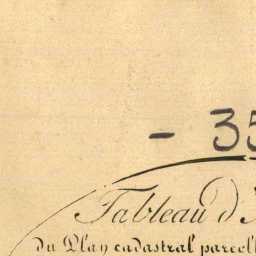 - 35
Tableau d'
du Plan cadastral parcell